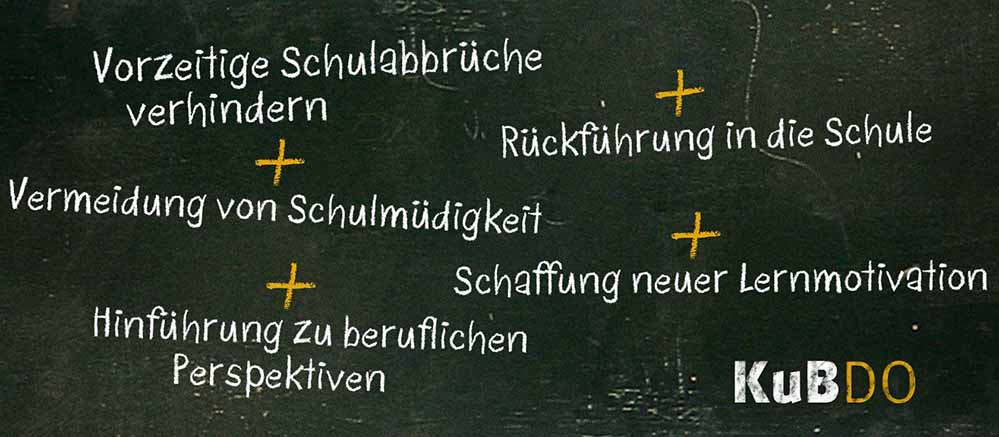 Vorzeitige Schulabbrüche
verhindern
+
Vermeidung von Schulmüdigkeit
+
Hinführung zu beruflichen
Perspektiven
+
Rückführung in die Schule
+
Schaffung neuer Lernmotivation
KuBDO